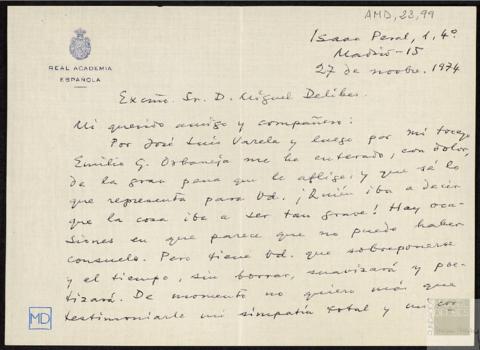 AMD, 23, 99
REAL ACADEMIA
ESPAÑOLA
Isaac Peral, 1, 4º.
Madrid-15
27 de novbre. 1974
Excmo. Sr. D. Miguel Delibes.
Mi querido amigo y compañero:
Por José Luis Varela y luego por mi tocayo
Emilio G. Orbaneja me he enterado, con dolor,
de la gran pena que le aflige, y que sé lo
que representa para Vd. ¡Quién iba a decir
que la cosa iba a ser tan grave! Hay oca-
siones en que parece que no puede haber
consuelo. Pero tiene Vd. que sobreponerse
y el tiempo, sin borrar, suavizará y poe-
tizará. De momento no quiero más que
testimoniarle mi simpatía total y mi cor
MD